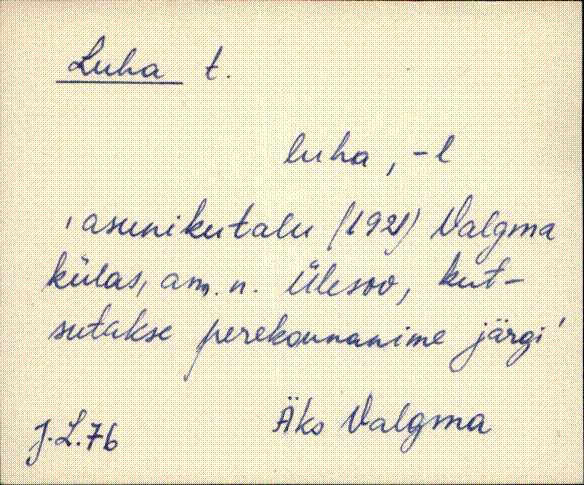 Luha t.
luha, -l
'asunikutalu (1921) Valgma
külas, am. n. Ülesoo, kut-
sutakse perekonnanime järgi'
Äks Valgma
J.L.76